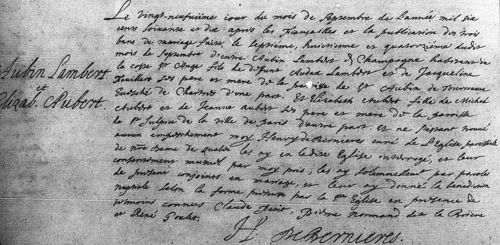 Le vingt-neufuiesme iour du mois de Septembre de L'année mil six
cens soixante et dix apres les fiançailles et la publication des trois
bans de mariage faite le septiesme, huitiesme et quatorziesme dudit
mois de septembre d'entre Aubin Lambert Champagne habitant de
la coste St Ange fils de defunt Lambert et de Jacqueline
ses pere et mere de la paroisse de St Aubin de Tourouure
Euesché de Chartres d'une part, Et Elizabeth Aubert fille de Michel
Aubert et de Jeanne Aubert ses pere et mere de la paroisse
de St Sulpice de la ville de paris d'autre part et ne s'estant trouué
aucun empeschement moy Henry de Bernieres curé de L'Eglise paroissiale
de nostre dame de quebec les ay en ladite Eglise interrogé, et leur
consentement mutuel par moy pris, les ay solemnellement par paroles
de present conjoints en mariage, et leur ay donné la benediction
nuptiale selon la forme prescrite par la Ste Eglise en presence de
temoins connus Claude Pierre Normand dit la Briere
et René
H. DeBernieres
Aubin Lambert
et
Elizab. Aubert.